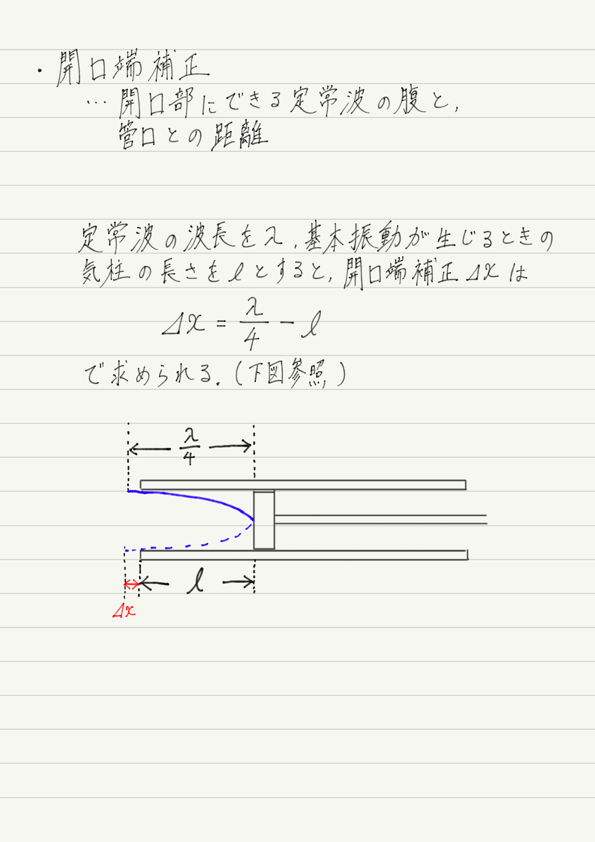 ・開口端補正
… 開口部にできる定常波の腹と,
管口との距離
定常波の波長をλ,基本振動が生じるときの
気柱の長さをlとすると,開口端補正Δxは
Δx = λ/4 - l
で求められる.(下図参照)
λ/4
l
Δx